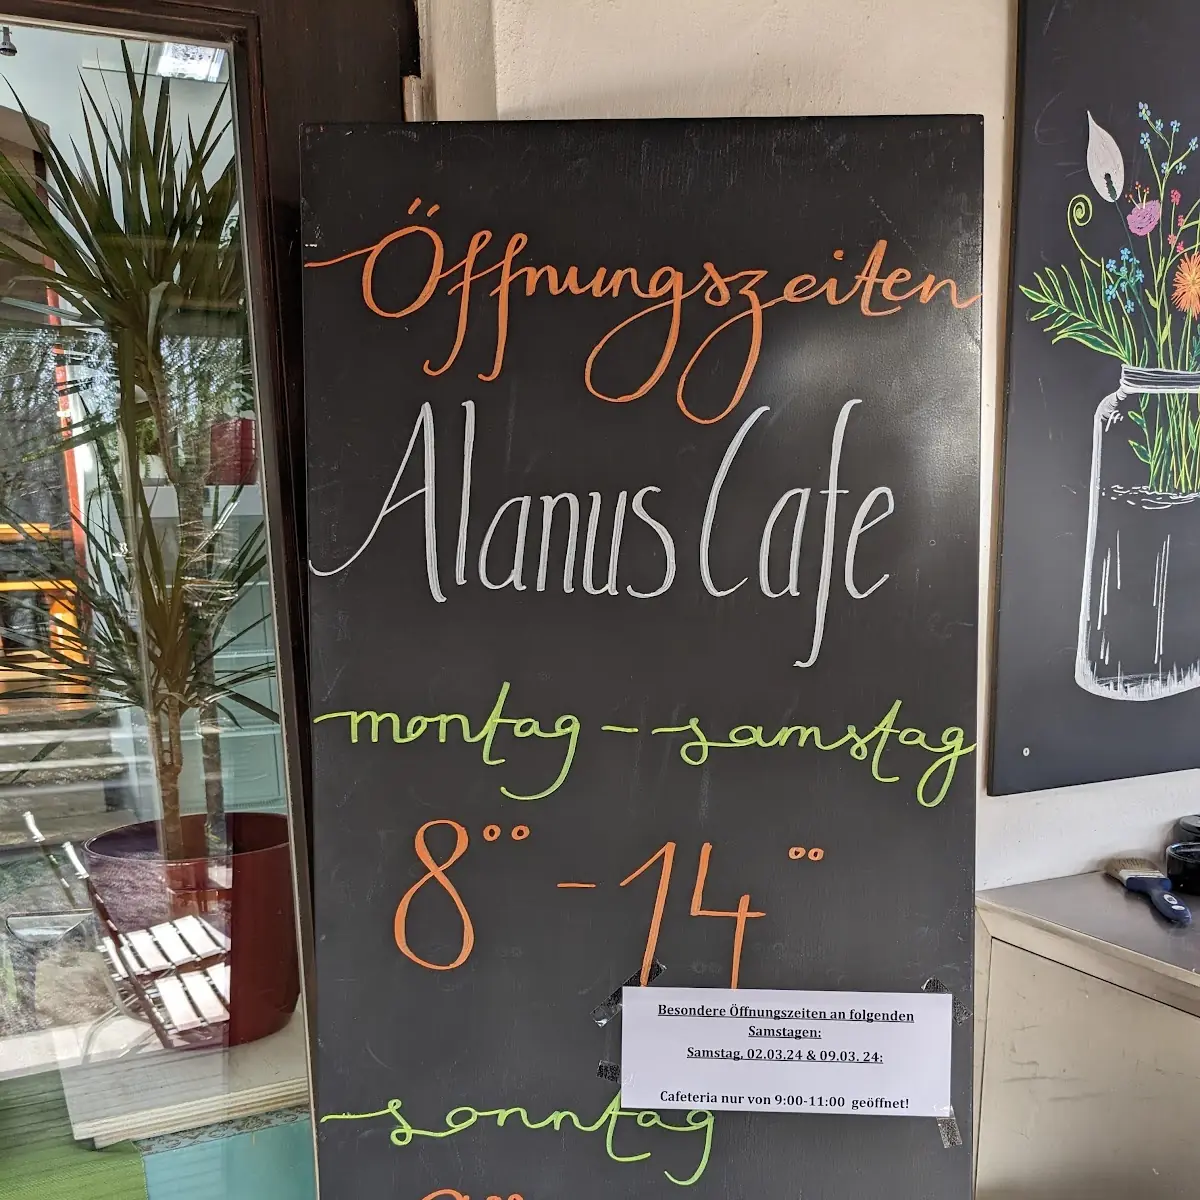 Öffnungszeiten
Alanus Cafe
montag - samstag
8°° - 14°°
Besondere Öffnungszeiten an folgenden
Samstagen:
Samstag, 02.03.24 & 09.03. 24:
Cafeteria nur von 9:00-11:00 geöffnet!
sonntag